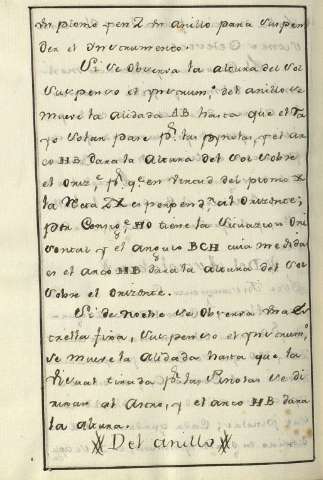 un plomo y en Z un anillo para suspen
der el Ynstrumento.
Si se observa la altura del sol
suspenso el Ynstrum.to del anillo se
mueve la alidada AB hasta que el ra
yo solar pase p.r las pinolas, y el ar
co HB dara la altura del sol sobre
el Oriz.te p.r q.e en virtud del plomo X
la recta ZX es perpend.r al Orizonte;
por conseq.te HO tiene la situazion Ori
zontal y el angulo BCH cuia medida
es el arco HB dara la altura del sol
sobre el Orizonte.
Si de noche se observa una Es
trella fixa, suspenso el Ynstrum.to
se mueve la alidada hasta que la
visual tirada p.r las Pinolas se di
rija al Astro, y el arco HB dara
la altura.
Del anillo